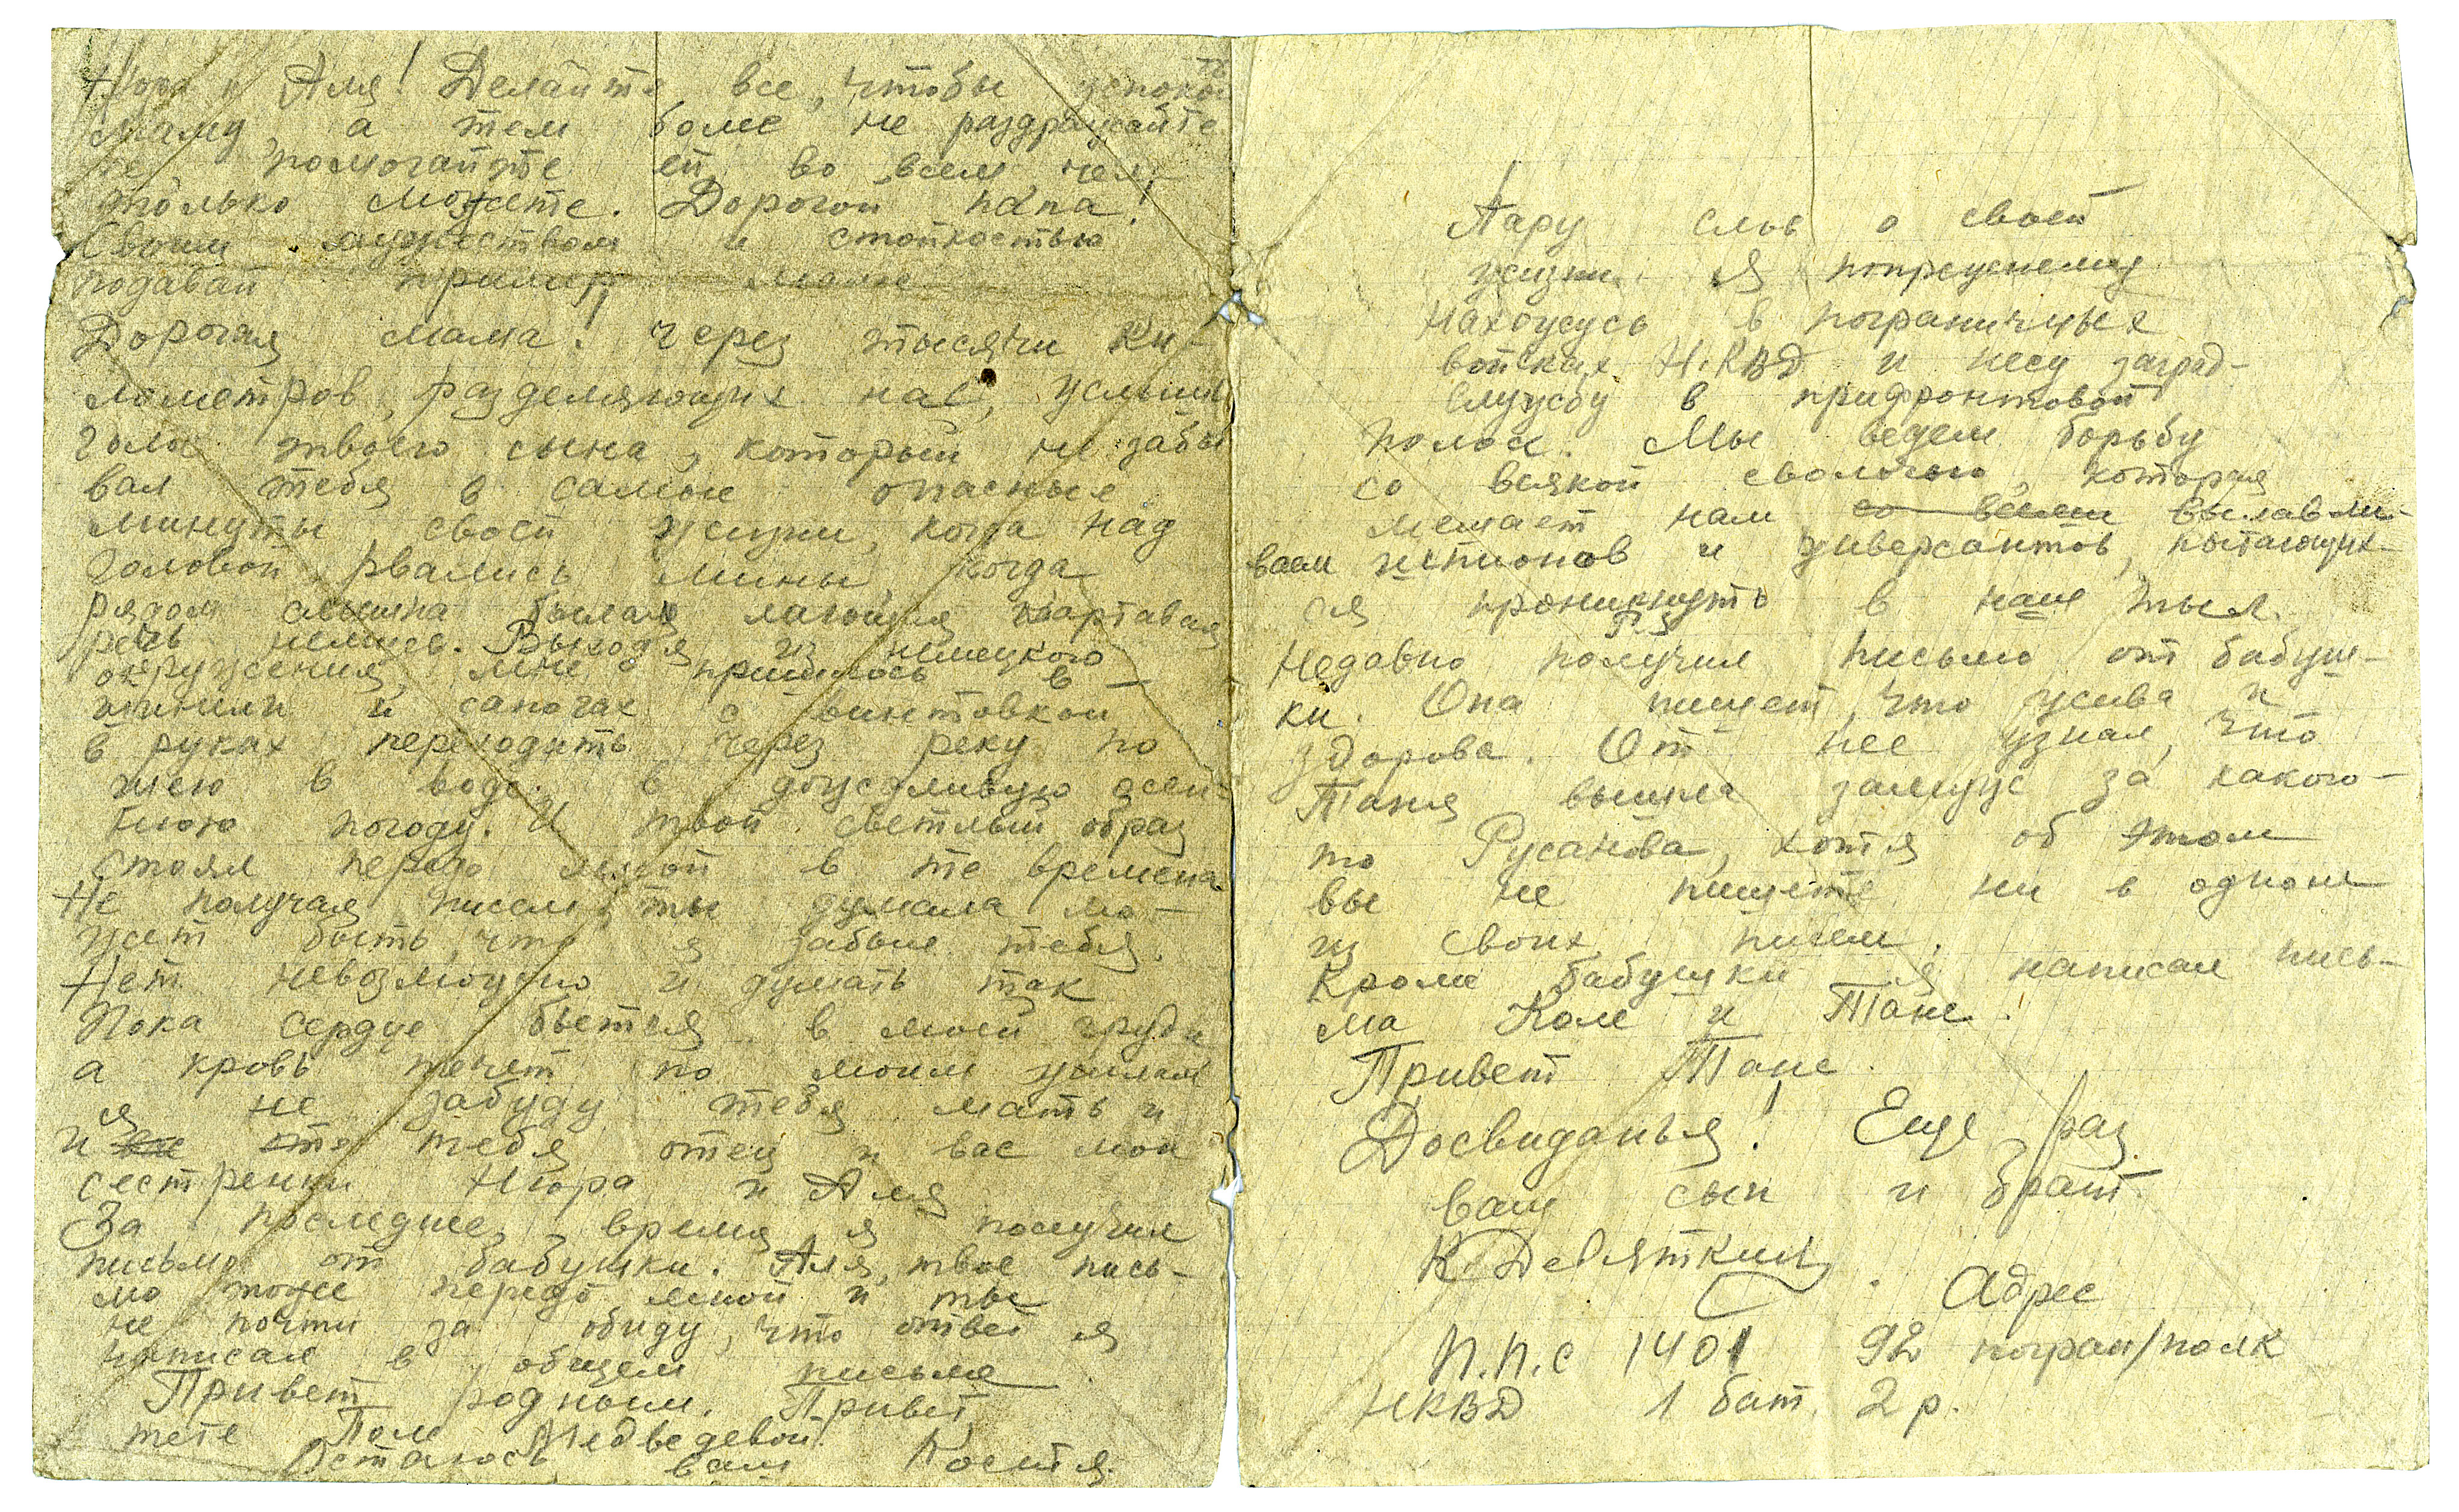 Нюра и Аля! Делайте все, чтобы успокоить
маму, а тем более не раздражайте
ее, помогайте ей во всем чем
только можете. Дорогой папа!
Своим мужеством и стойкостью
подавай пример маме
Дорогая мама! Через тысячи ки-
лометров, разделяющих нас, услышь
голос твоего сына, который не забы
вал тебя в самые опасные
минуты своей жизни, когда над
головой рвались мины, когда
рядом слышна была лающая картавая
речь немцев. Выходя из немецкого
окружения, мне пришлось в
шинели и сапогах с винтовкой
в руках переходить через реку по
шею в воде в дождливую осен-
нюю погоду. И твой светлый образ
стоял передо мной в те времена.
Не получая писем, ты думала мо-
жет быть, что я забыл тебя.
Нет невозможно и думать так
Пока сердце бьется в моей груди
а кровь течет по моим жилам
я не забуду тебя мать и
и тебя отец и вас мои
сестренки Нюра и Аля
За последнее время я получил
письмо от бабушки. Аля, твое пись-
мо тоже передо мной и ты
не почти за обиду, что ответ я
написал в общем письме
Привет родным. Привет
тете Поле Медведевой.
Остаюсь ваш Костя.
Пару слов о своей
жизни. Я попрежнему
нахожусь в пограничных
войсках НКВД и несу заград-
службу в прифронтовой
полосе. Мы ведем борьбу
со всякой сволочью, которая
мешает нам со всеми вылавли-
ваем шпионов и диверсантов, пытающих-
ся проникнуть в наш тыл.
Недавно получил письмо от бабуш-
ки. Она пишет, что жива и
здорова. От нее узнал, что
Таня вышла замуж за какого-
то Русанова, хотя об этом
вы не пишете ни в одном
из своих писем.
Кроме бабушки я написал пись-
ма Коле и Тане.
Привет Тане.
Досвиданья! Еще раз
ваш сын и брат
К Девяткин.
Адрес
П.П.С 1401 92 погран/полк
НКВД 1 бат. 2 р.